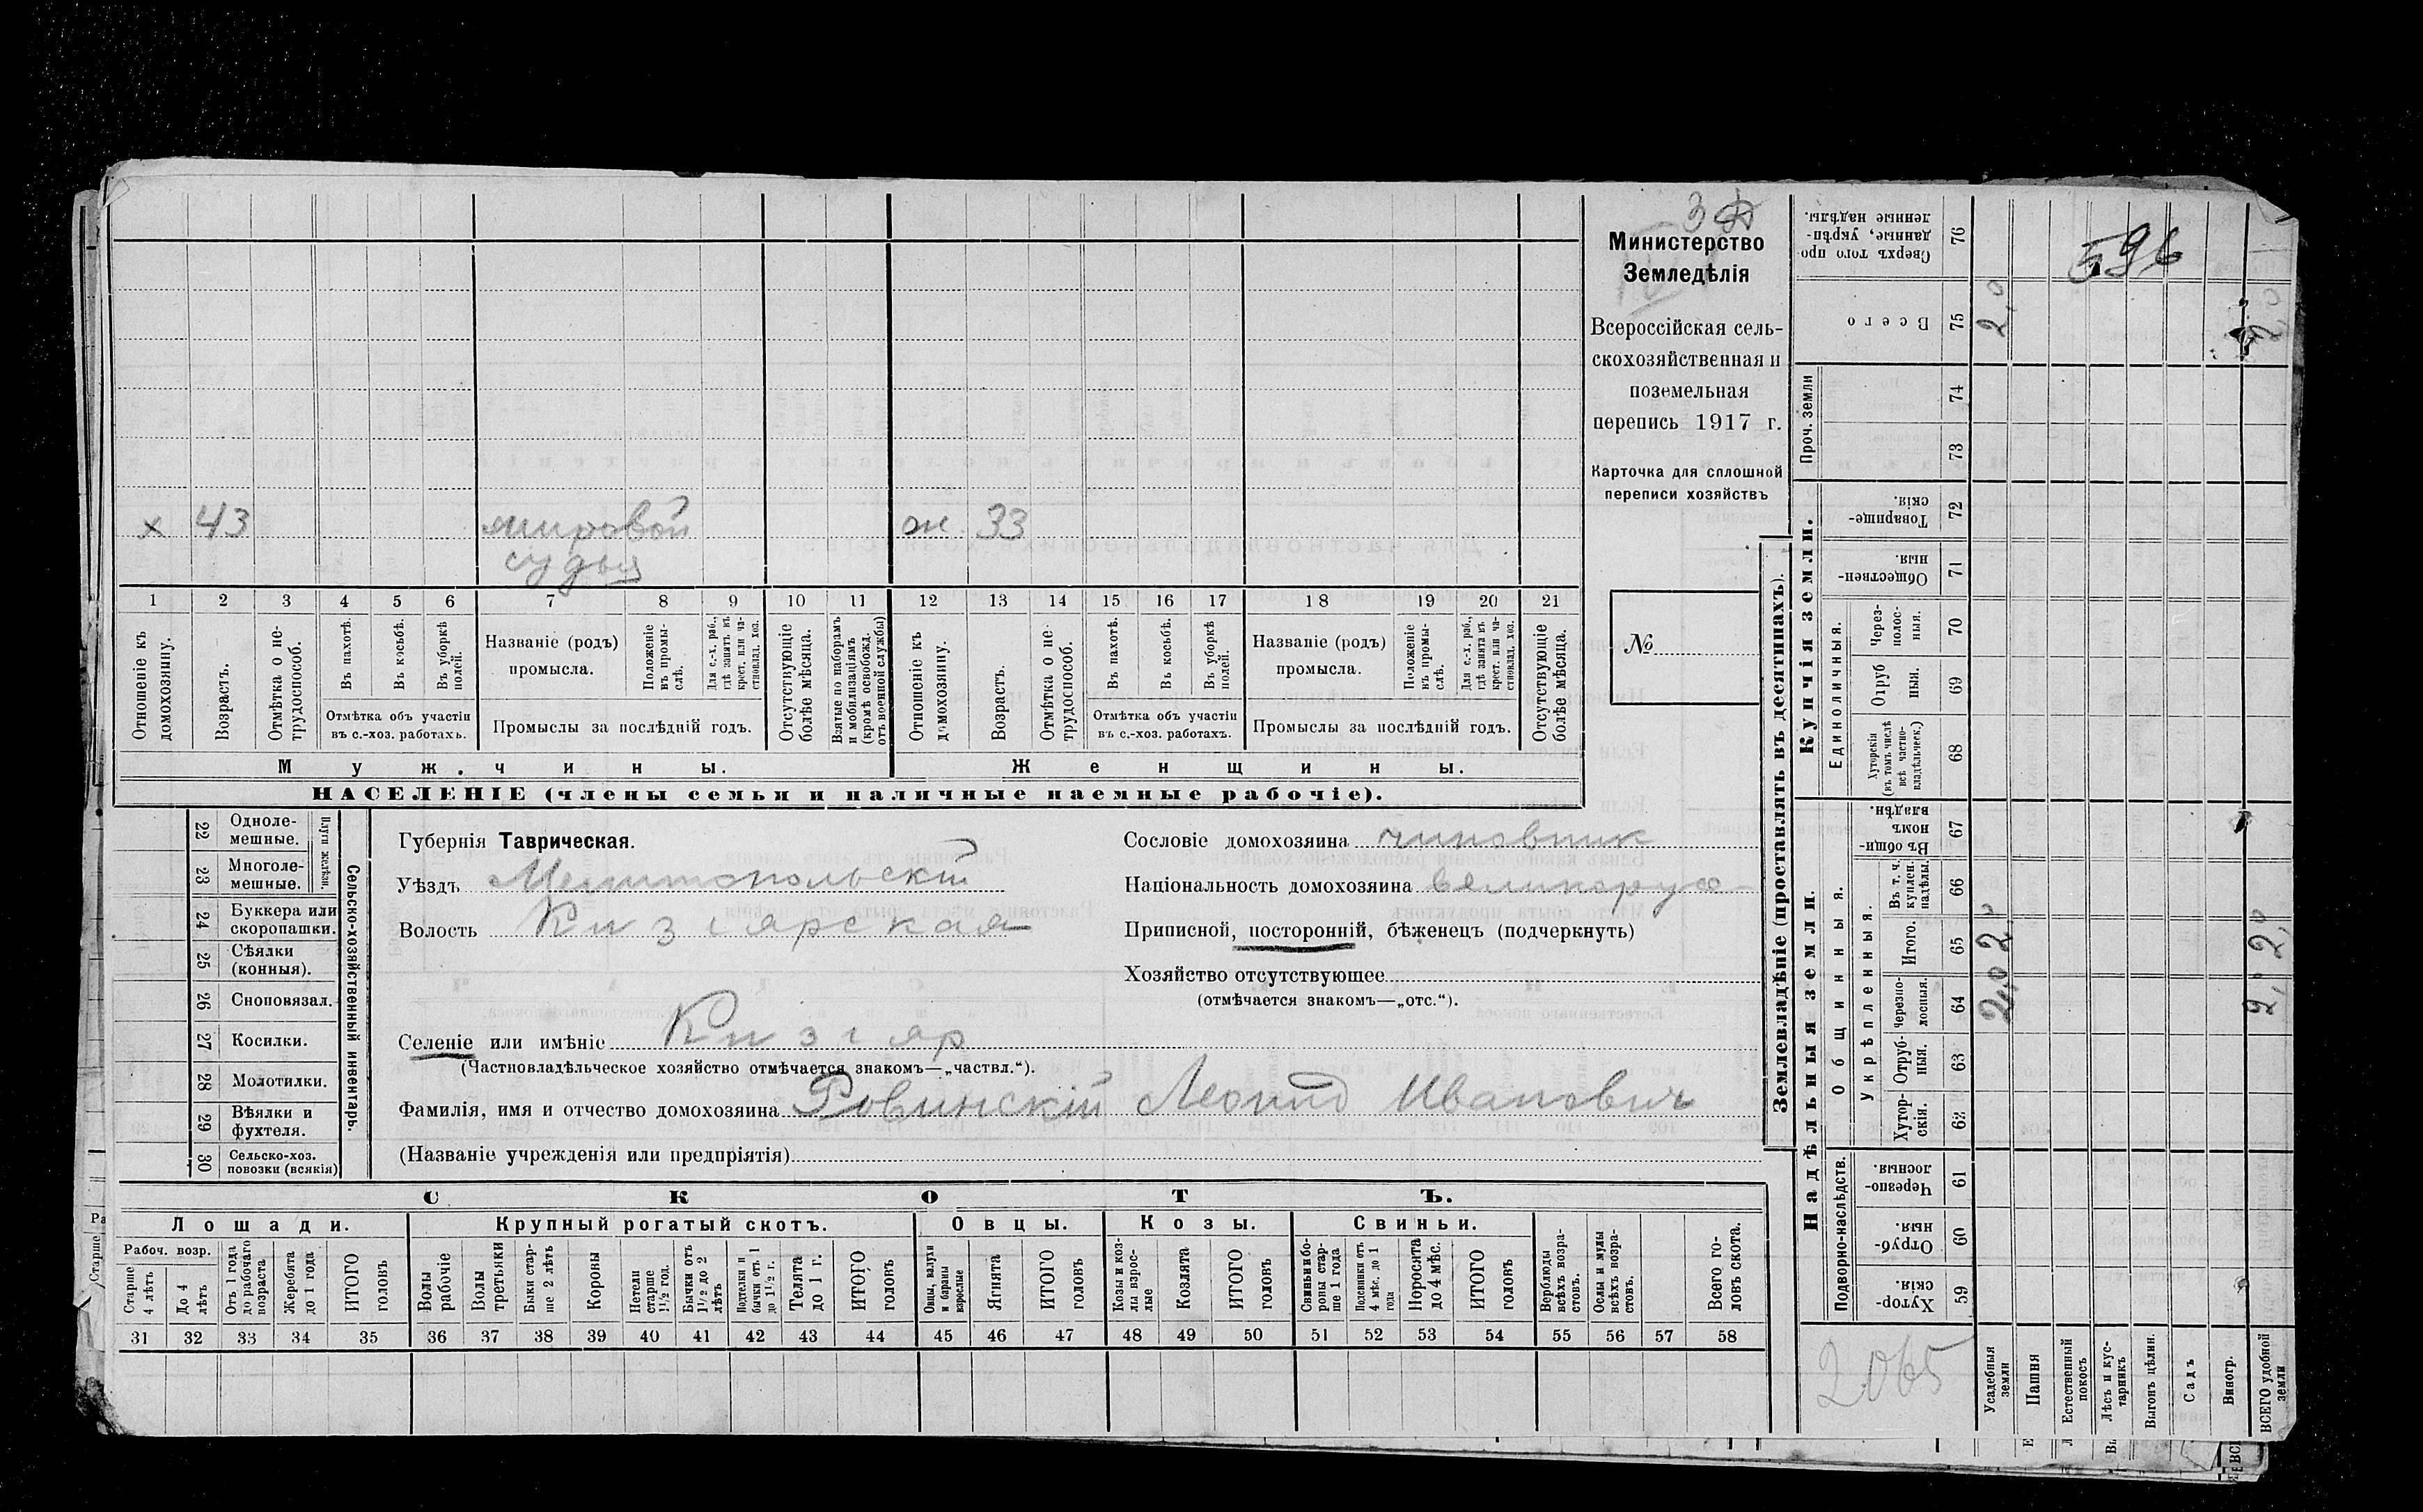 х 43 мировой ж. 33
судья
1 2 3 4 5 6 7 8 9 10 11 12 13 14 15 16 17 18 19 20 21
Отношеніе къ домохозяину.
Возрастъ.
Отмѣтка о нетрудоспособ.
Въ пахотѣ.
Въ косьбѣ.
Въ уборкѣ полей.
Отмѣтка объ участіи
въ с.-хоз. работахъ.
Названіе (родъ)
промысла.
Положеніе въ промыслѣ.
Для с.-х. раб., гдѣ занятъ въ крест. или частновлад. хоз.
Промыслы за послѣдній годъ.
Отсутствующіе болѣе мѣсяца.
Взятые по наборамъ и мобилизаціямъ (кромѣ освобожд. отъ военной службы)
Отношеніе къ домохозяину.
Возрастъ.
Отмѣтка о нетрудоспособ.
Въ пахотѣ.
Въ косьбѣ.
Въ уборкѣ полей.
Отмѣтка объ участіи
въ с.-хоз. работахъ.
Названіе (родъ)
промысла.
Положеніе въ промыслѣ.
Для с.-х. раб., гдѣ занята въ крест. или частновлад. хоз.
Промыслы за послѣдній годъ.
Отсутствующіе болѣе мѣсяца.
Мужчины. Женщины.
НАСЕЛЕНІЕ (члены семьи и наличные наемные рабочіе).
Министерство
Земледѣлія
Всероссійская сель-
скохозяйственная и
поземельная
перепись 1917 г.
Карточка для сплошной
переписи хозяйствъ
№
22 Одноле-
мешные.
23 Многоле-
мешные.
Плуги желѣзн.
24 Буккера или
скоропашки.
25 Сѣялки
(конныя).
26 Сноповязал.
27 Косилки.
28 Молотилки.
29 Вѣялки и
фухтеля.
30 Сельско-хоз.
повозки (всякія)
Сельско-хозяйственный инвентарь.
Губернія Таврическая.
Уѣздъ Мелитопольскій
Волость Кизіярская
Селеніе или имѣніе Кизіяр
(Частновладѣльческое хозяйство отмѣчается знакомъ—„частвл.“).
Фамилія, имя и отчество домохозяина Ровинскій Леонид Иванович
(Названіе учрежденія или предпріятія)
Сословіе домохозяина чиновник
Національность домохозяина великорус
Приписной, посторонній, бѣженецъ (подчеркнуть)
Хозяйство отсутствующее
(отмѣчается знакомъ—„отс.“).
СКОТЪ.
Лошади. Крупный рогатый скотъ. Овцы. Козы. Свиньи.
Рабоч. возр.
Старше 4 лѣтъ
До 4 лѣтъ
Отъ 1 года до рабочаго возраста
Жеребята до 1 года
ИТОГО головъ
Волы рабочіе
Волы третьяки
Быки старше 2 лѣтъ
Коровы
Нетели старше 1½ год.
Бычки отъ 1½ до 2 лѣтъ
Подтелки и бычки отъ 1 до 1½ г.
Телята до 1 г.
ИТОГО головъ
Овцы, валухи и бараны взрослые
Ягнята
ИТОГО головъ
Козы и козлы взрослые
Козлята
ИТОГО головъ
Свиньи и боровы старше 1 года
Подсвинки отъ 4 мѣс. до 1 года
Поросята до 4 мѣс.
ИТОГО головъ
Верблюды всѣхъ возрастовъ.
Ослы и мулы всѣхъ возрастовъ.
Всего головъ скота.
31 32 33 34 35 36 37 38 39 40 41 42 43 44 45 46 47 48 49 50 51 52 53 54 55 56 57 58
Землевладѣніе (проставлять въ десятинахъ).
Сверхъ того проданные, укрѣпленные надѣлы. 76
Всего 75 2,0 2,0
596
Проч. земли 74
73
Купчія земли.
Товарищескія. 72
Общественныя. 71
Единоличныя.
Черезполосныя. 70
Отрубныя. 69
Хуторскія (въ томъ числѣ всѣ частновладѣльческ.) 68
Надѣльныя земли.
Общинныя.
Въ общинномъ владѣн. 67
Укрѣпленныя.
Въ т. ч. куплен. надѣлы. 66
Итого. 65 2,0 2,0
Черезполосныя. 64
Отрубныя. 63
Хуторскія. 62
Подворно-наслѣдств.
Черезполосныя. 61
Отрубныя. 60
Хуторскія. 59
2065
Усадебныя земли
Пашня
Естественный покосъ
Лѣсъ и кустарникъ
Выгонъ цѣлин.
Садъ
Виногр.
ВСЕГО удобной земли